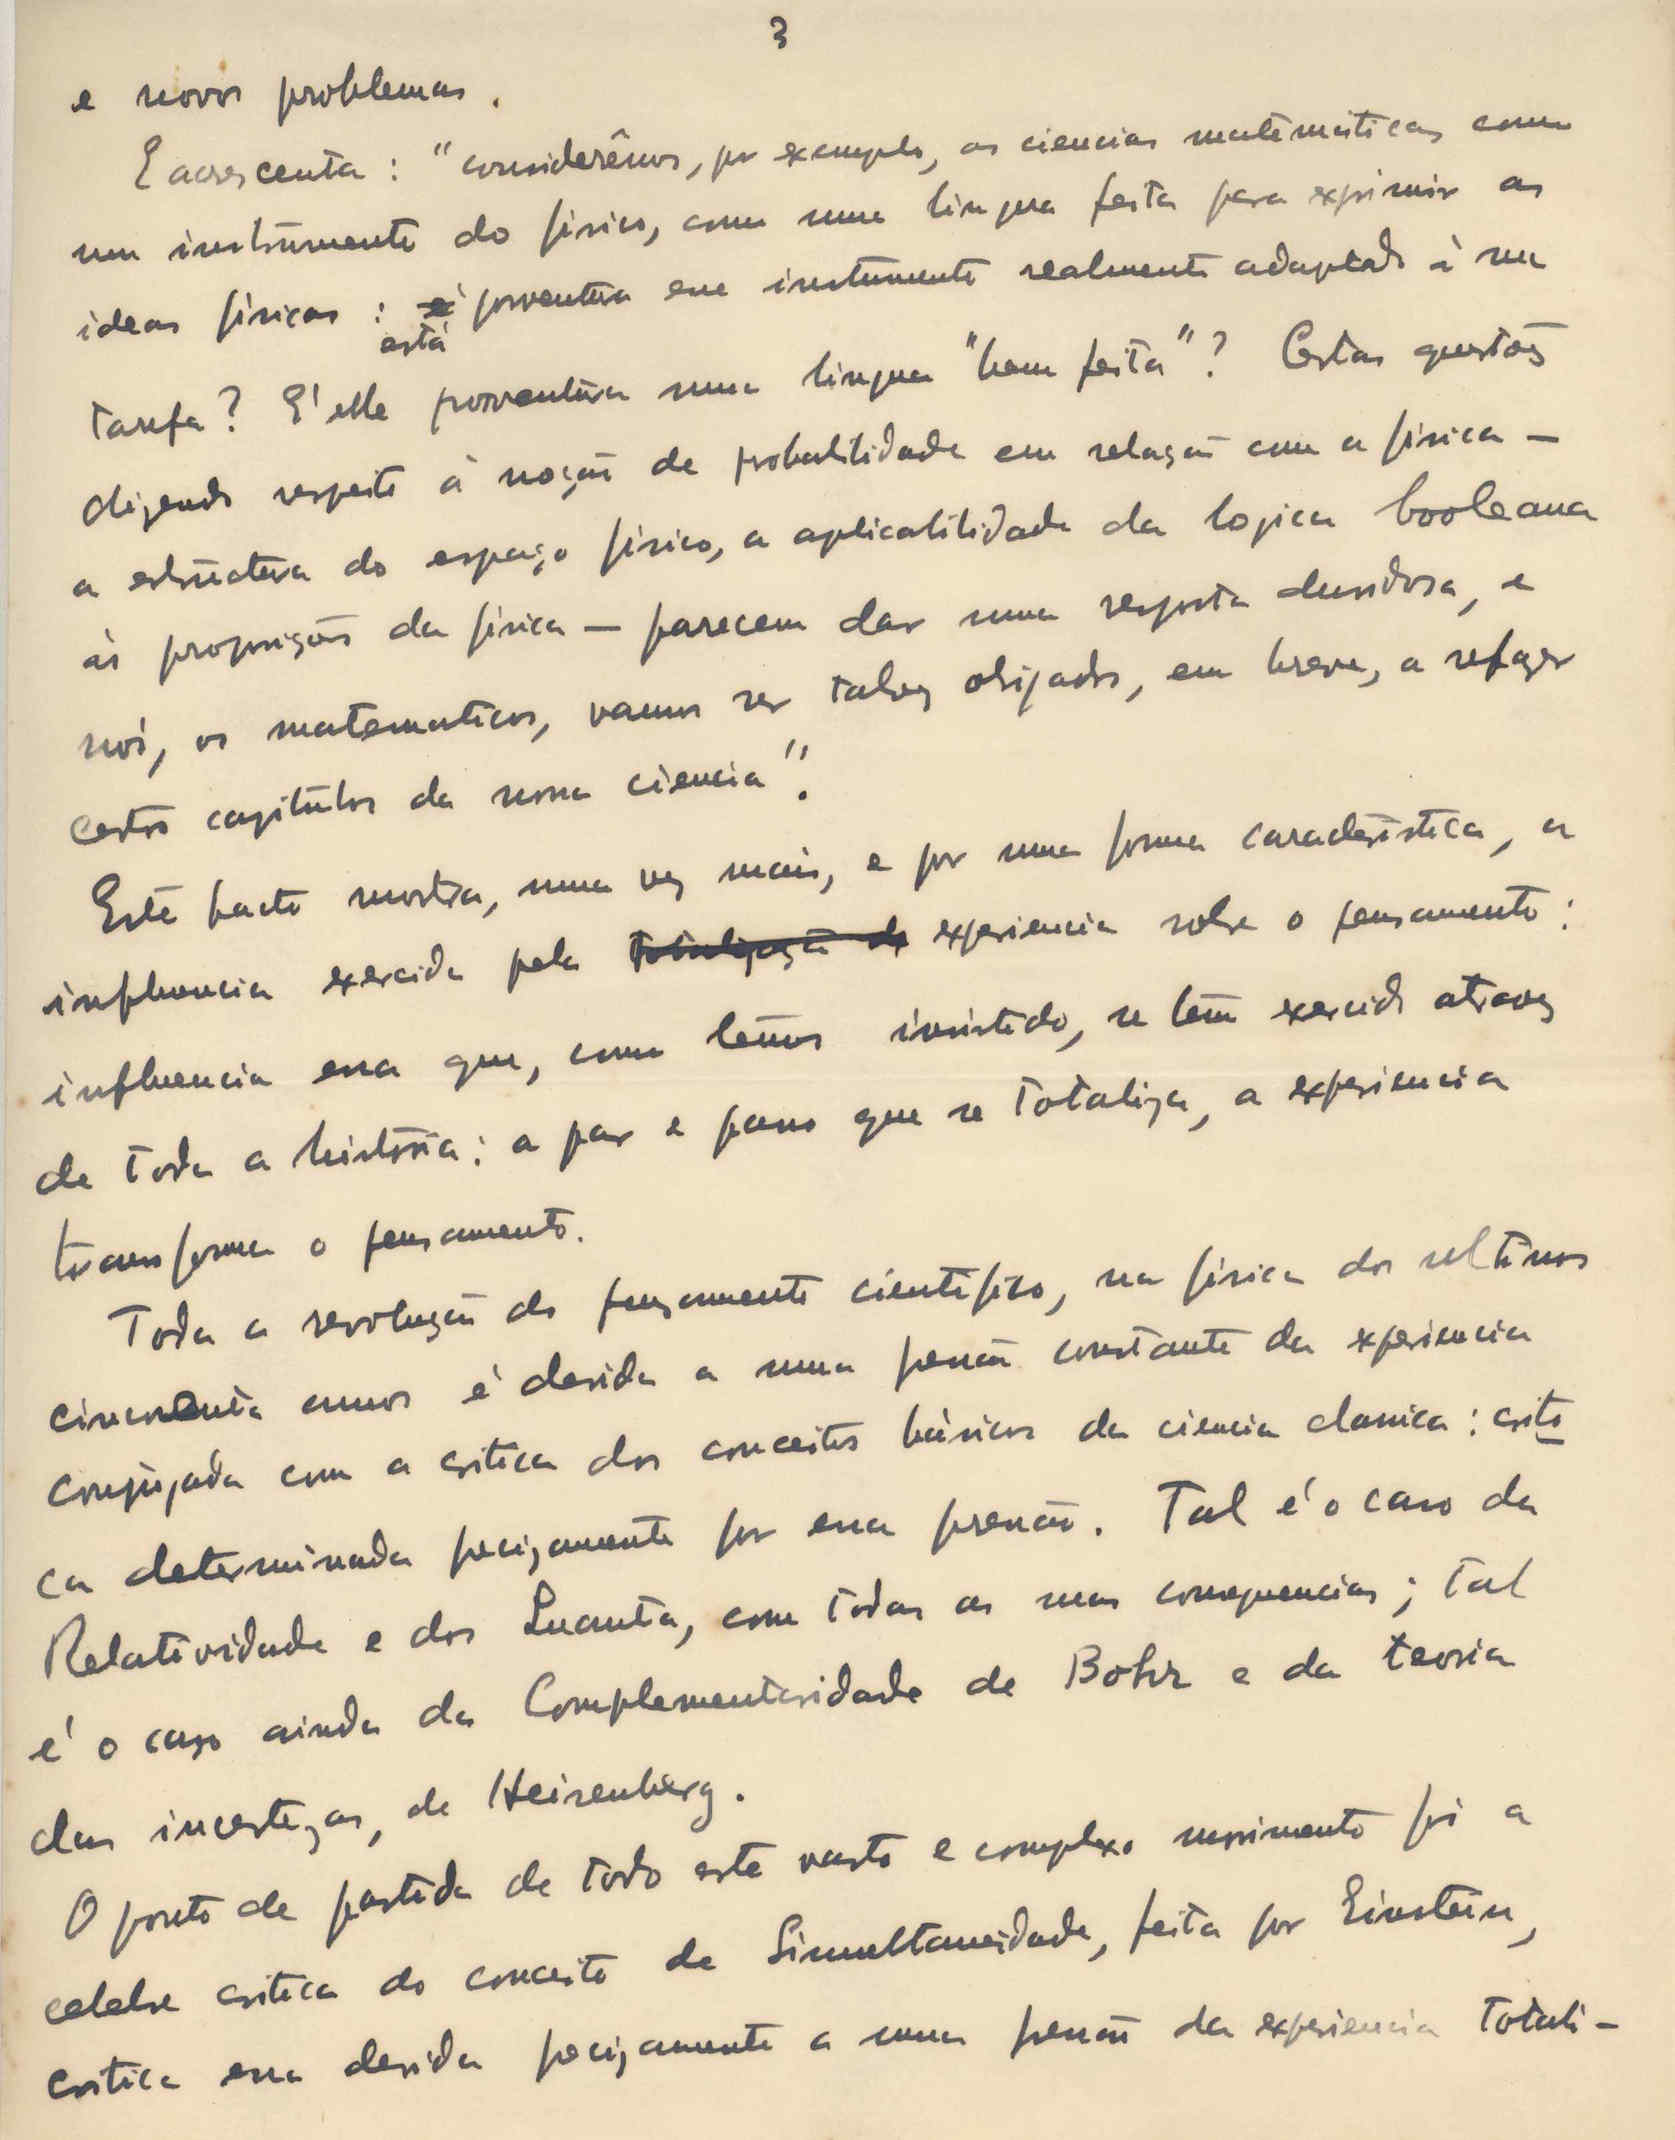 3
e novos problemas.
E acrescenta: "considerêmos, por exemplo, as ciencias matemáticas como
um instrumento do físico, como uma lingua feita para exprimir as
ideas físicas: está porventura esse instrumento realmente adaptado à sua
tarefa? É elle porventura uma lingua "bem feita"? Certas questões
dizendo respeito à noção de probabilidade em relação com a física —
a estructura do espaço físico, a aplicabilidade da logica booleana
às proposições da física — parecem dar uma resposta duvidosa, e
nós, os matematicos, vamos ser talvez obrigados, em breve, a refazer
certos capitulos da nossa ciencia".
Este facto mostra, uma vez mais, e por uma forma caracteristica, a
influencia exercida pela experiencia sobre o pensamento:
influencia essa que, como temos insistido, se tem exercido atravez
de toda a história: a par e passo que se totaliza, a experiencia
transforma o pensamento.
Toda a revolução do pensamento cientifico, na física dos ultimos
cincoenta annos é devida a uma pressão constante da experiencia
conjugada com a critica dos conceitos básicos da ciencia classica: criti
ca determinada precizamente por essa pressão. Tal é o caso da
Relatividade e dos Quanta, com todas as suas consequencias; tal
é o caso ainda da Complementaridade de Bohr e da teoria
das incertezas, de Heisenberg.
O ponto de partida de todo este vasto e complexo movimento foi a
celebre critica do conceito de Simultaneidade, feita por Einstein,
critica essa devida precizamente a uma pressão da experiencia totali-